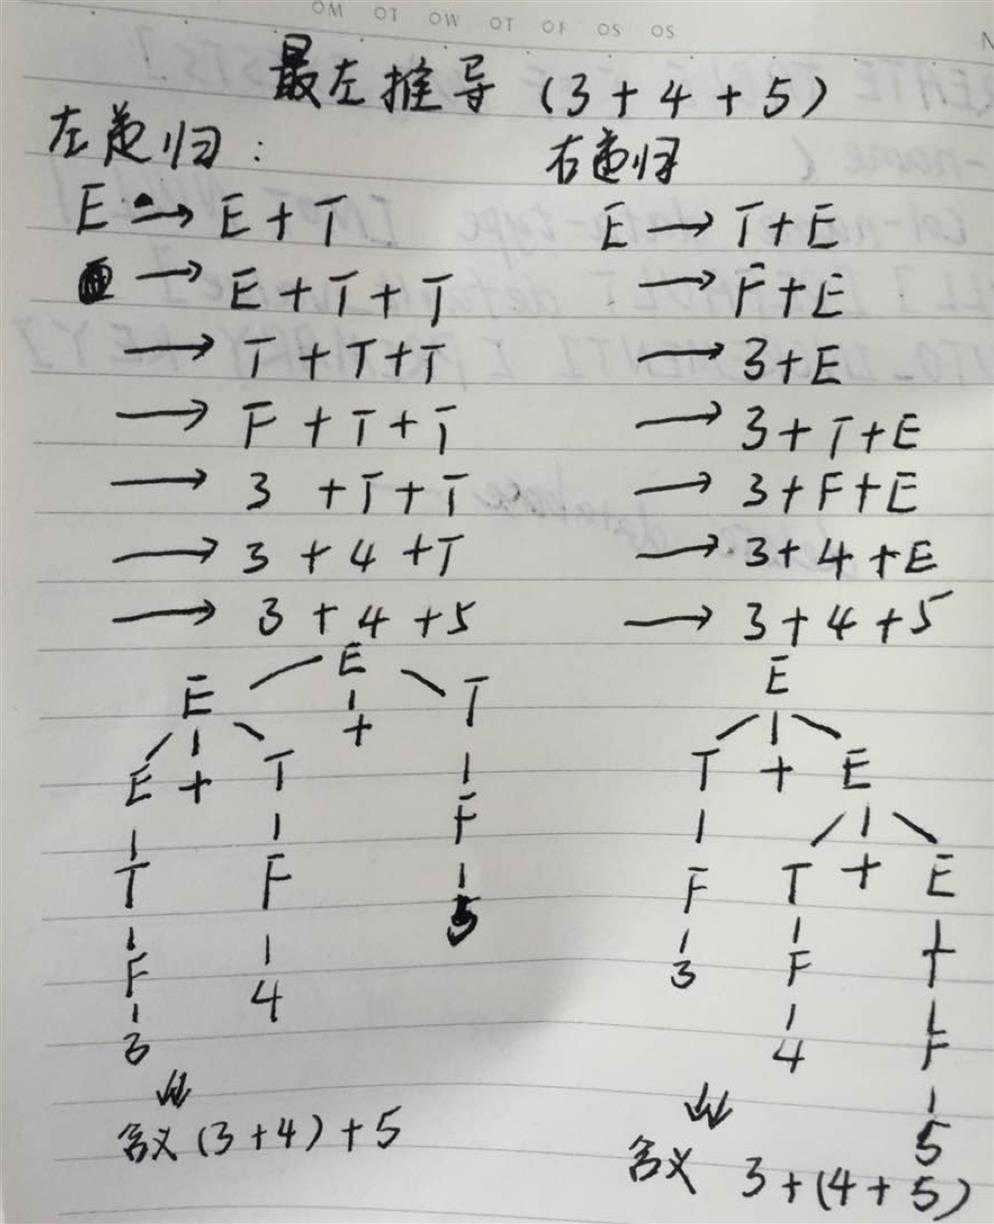 最左推导 (3+4+5)
左递归:
E → E+T
→ E+T+T
→ T+T+T
→ F+T+T
→ 3+T+T
→ 3+4+T
→ 3+4+5
E
E + T
E + T F
T F 5
F 4
3
含义 (3+4)+5
右递归
E → T+E
→ F+E
→ 3+E
→ 3+T+E
→ 3+F+E
→ 3+4+E
→ 3+4+5
E
T + E
F T + E
3 F T
4 F
5
含义 3+(4+5)